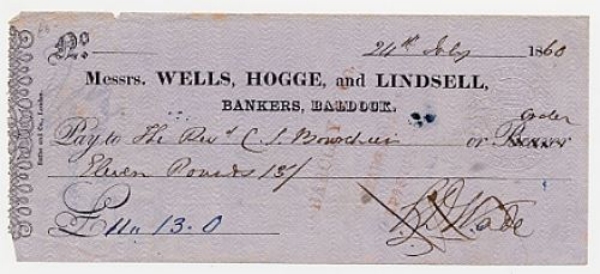 No. 24th July 1860
Messrs. WELLS, HOGGE, and LINDSELL,
BANKERS, BALDOCK.
Pay to The Revd C. S. Bourchier or Bearer order
Eleven Pounds 13/
£11 " 13 . 0
Wade